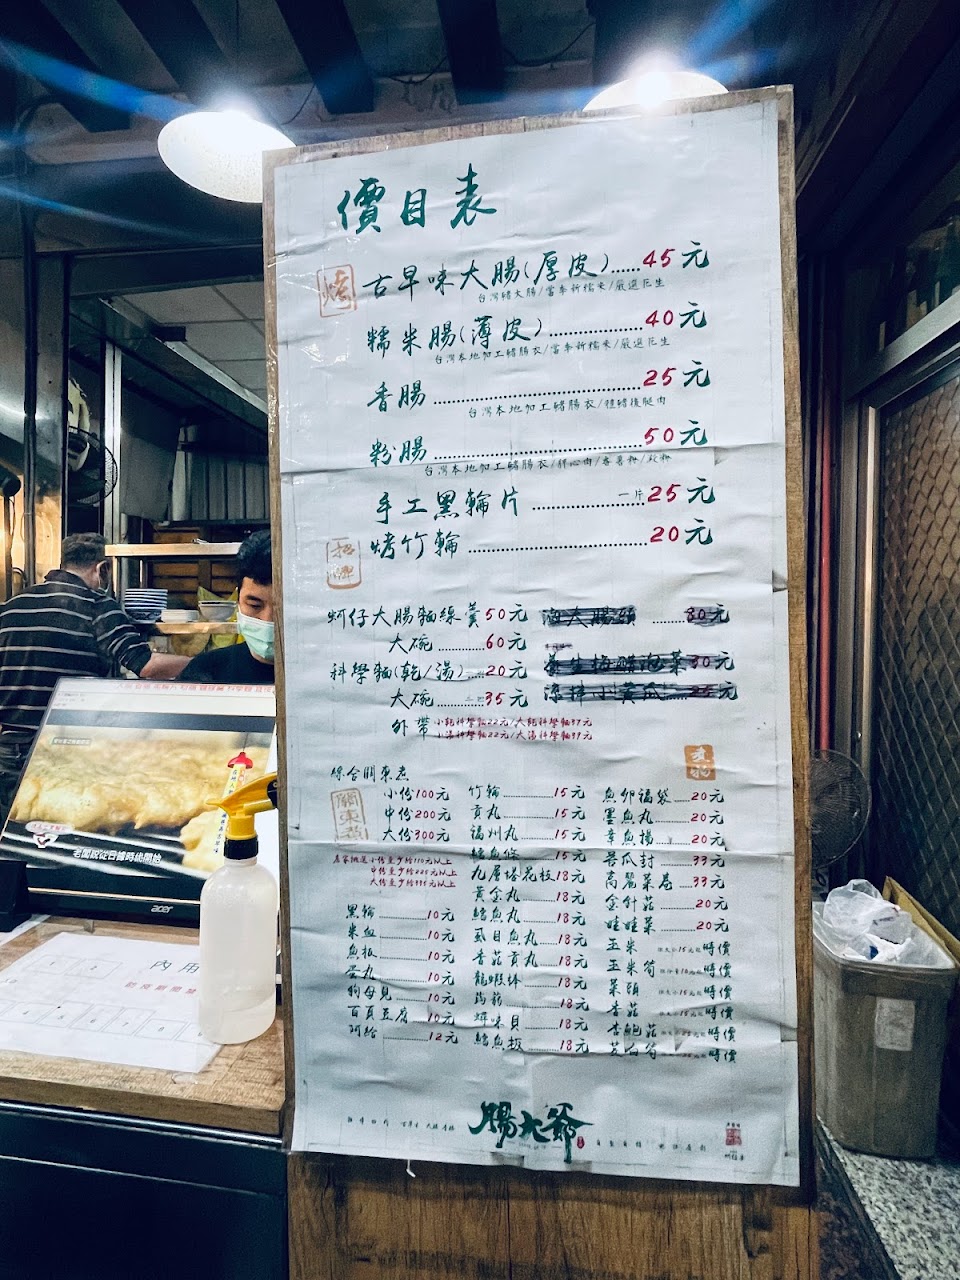 價目表
烤
古早味大腸(厚皮)......45元
台灣豬大腸/當季新糯米/嚴選花生
糯米腸(薄皮)......40元
台灣本地加工豬腸衣/當季新糯米/嚴選花生
香腸......25元
台灣本地加工豬腸衣/豬後腿肉
粉腸......50元
台灣本地加工豬腸衣
手工黑輪片......一片25元
烤竹輪......20元
招牌
蚵仔大腸麵線羹50元
大碗......60元
科學麵(乾/湯)......20元
大碗......35元
外帶
小乾科學麵22元/大乾科學麵37元
小湯科學麵22元/大湯科學麵
綜合關東煮
關東煮
小份100元
中份200元
大份300元
黑輪......10元
米血......10元
魚板......10元
蛋丸......10元
狗母見......10元
百頁豆腐......10元
阿給......12元
竹輪......15元
貢丸......15元
福州丸......15元
鱈魚條......15元
九層塔花枝18元
黃金丸......18元
鱈魚丸......18元
虱目魚丸......18元
香菇貢丸......18元
龍蝦棒......18元
蒟蒻......18元
蟳味貝......18元
鱈魚板......18元
魚卵福袋......20元
墨魚丸......20元
章魚揚......20元
苦瓜封......33元
高麗菜卷......33元
金針菇......20元
娃娃菜......20元
玉米 時價
玉米筍 時價
菜頭 時價
香菇 時價
杏鮑菇 時價
茭白筍 時價
腸大爺
老闆說從日據時候開始
acer
內用